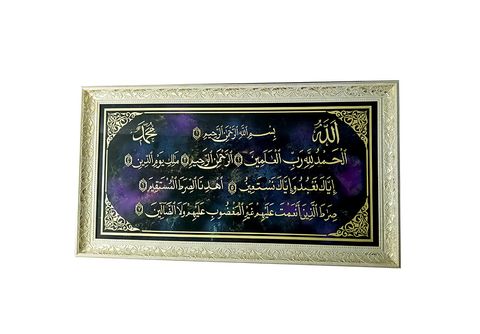 الله
محمد
بِسْمِ اللَّهِ الرَّحْمَٰنِ الرَّحِيمِ ١
الْحَمْدُ لِلَّهِ رَبِّ الْعَالَمِينَ ٢ الرَّحْمَٰنِ الرَّحِيمِ ٣ مَالِكِ يَوْمِ الدِّينِ ٤
إِيَّاكَ نَعْبُدُ وَإِيَّاكَ نَسْتَعِينُ ٥ اهْدِنَا الصِّرَاطَ الْمُسْتَقِيمَ ٦
صِرَاطَ الَّذِينَ أَنْعَمْتَ عَلَيْهِمْ غَيْرِ الْمَغْضُوبِ عَلَيْهِمْ وَلَا الضَّالِّينَ ٧